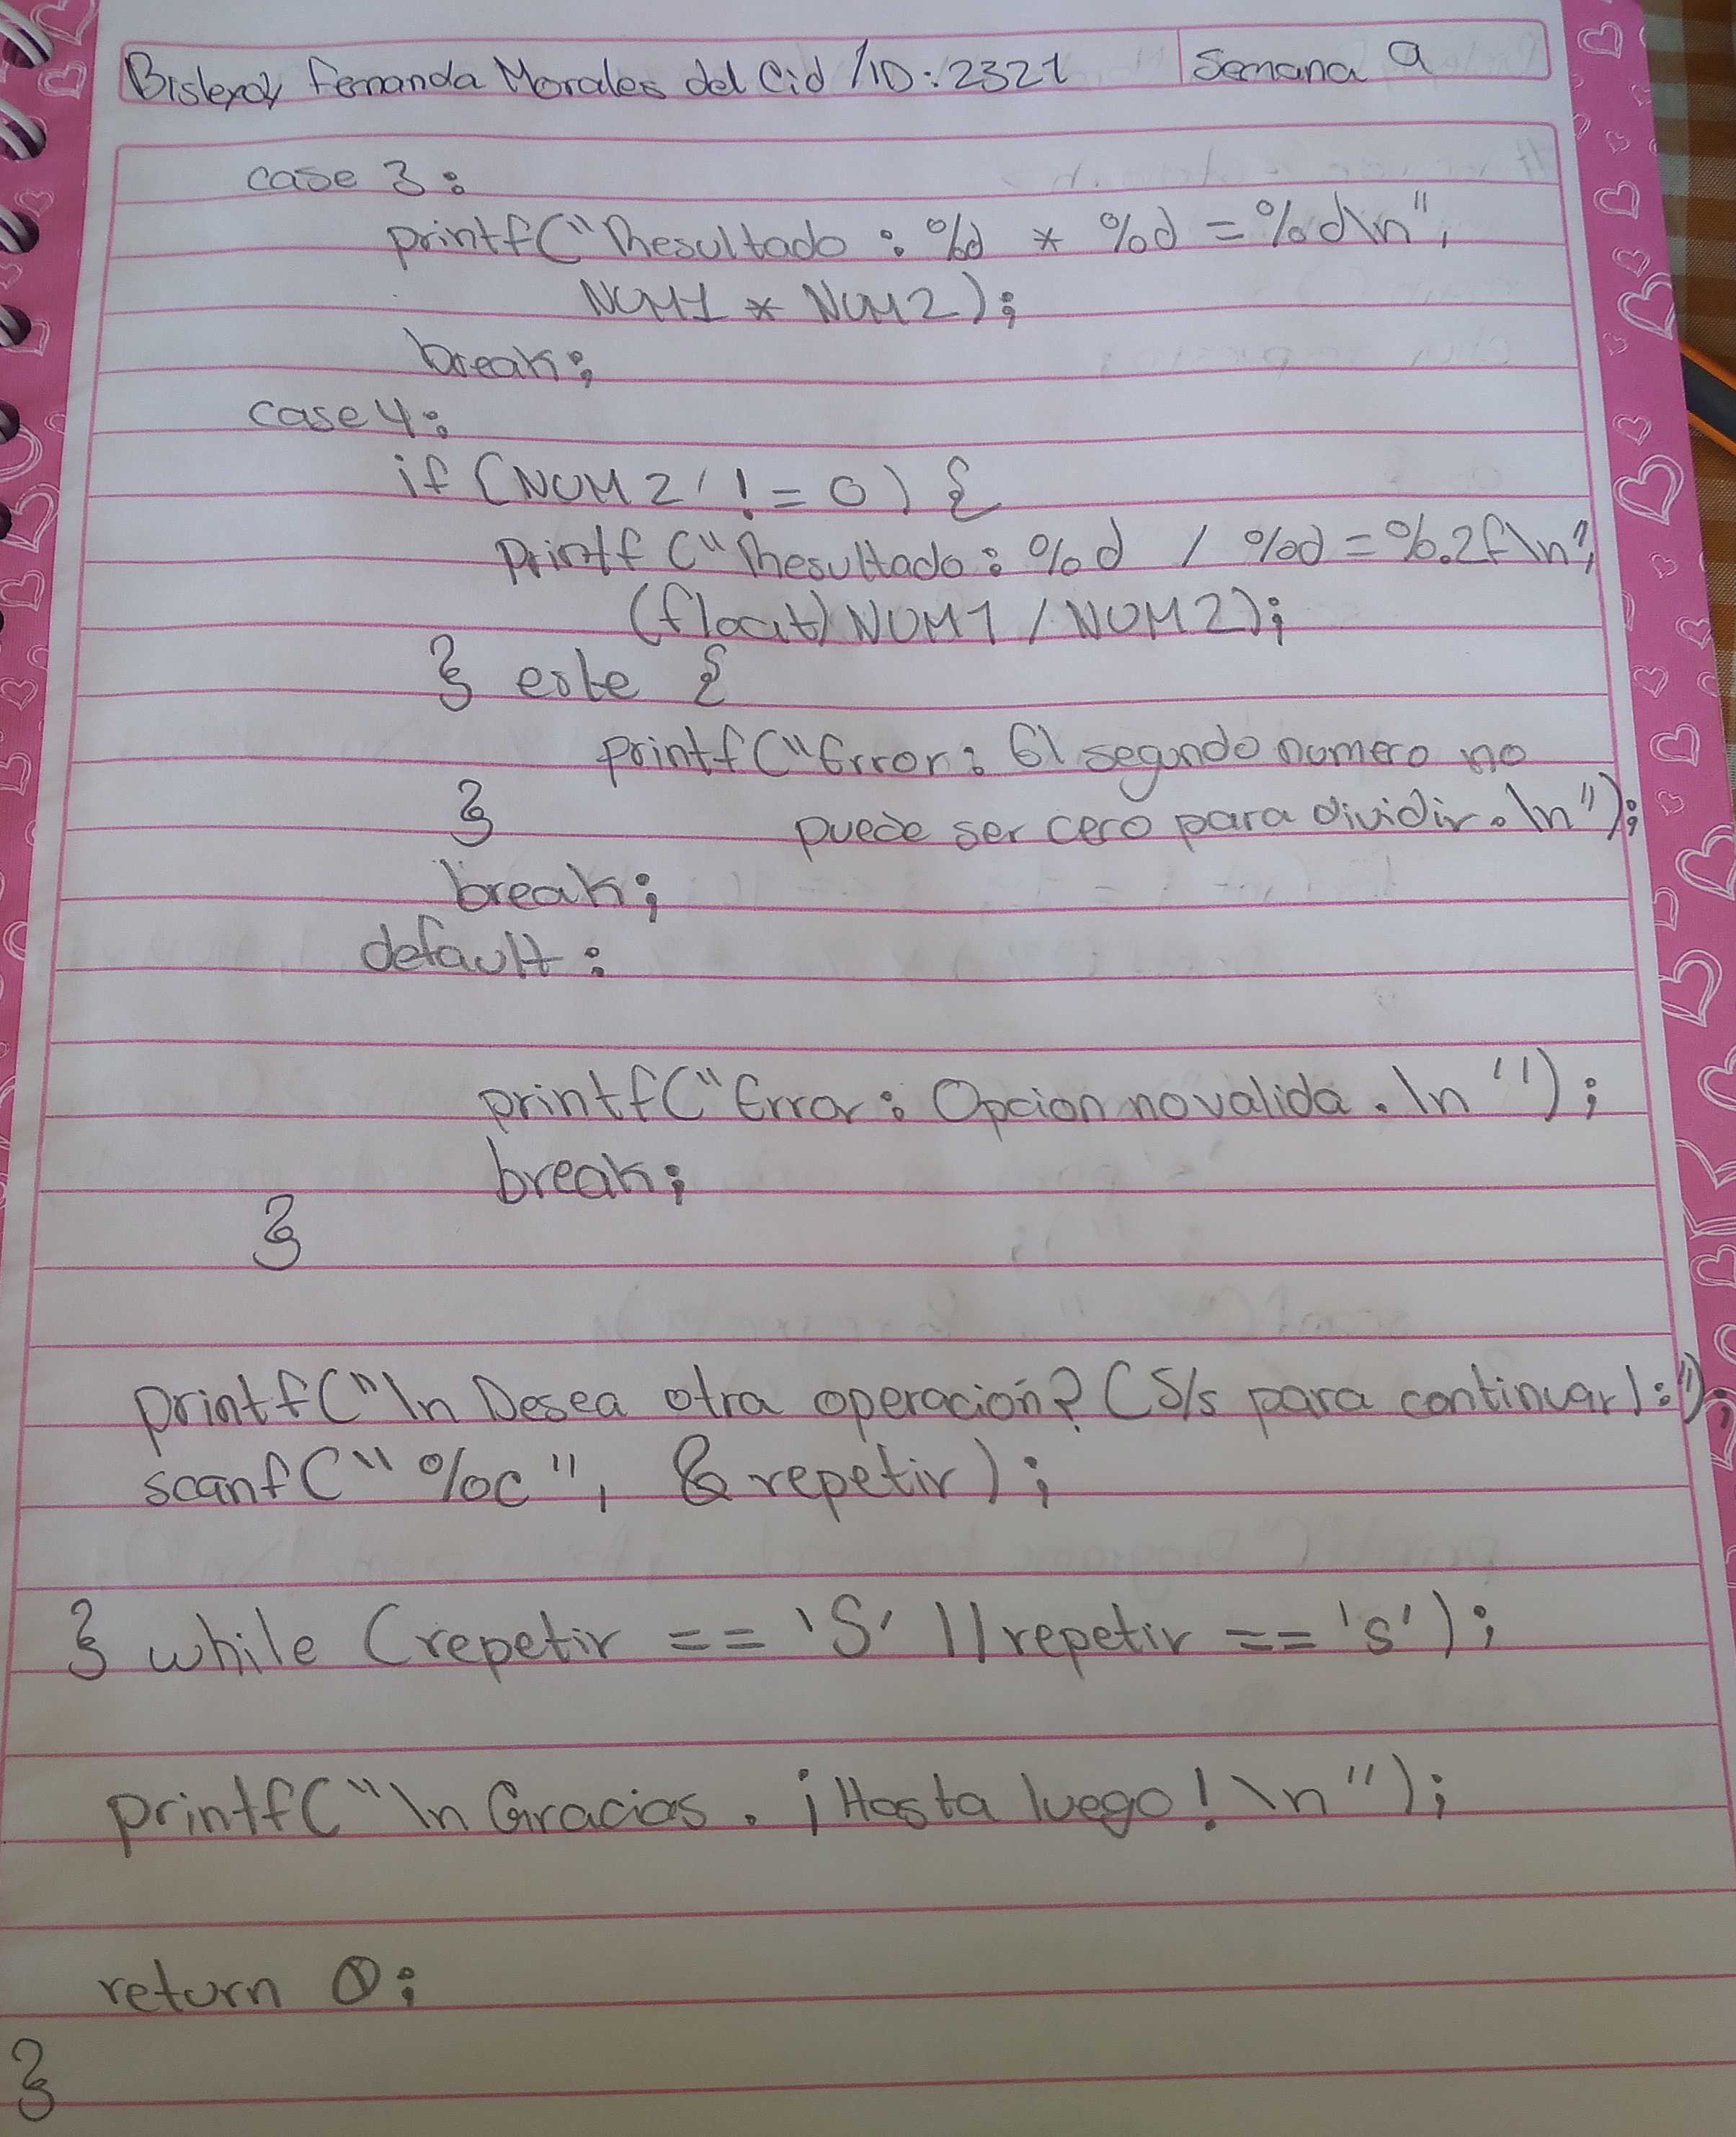 Fernanda Morales del Cid / ID: 2321 Semana 9
case 3:
printf("Resultado : %d * %d = %d\n",
NUM1 * NUM2);
break;
case 4:
if (NUM2 != 0) {
printf ("Resultado: %d / %d = %.2f\n",
(float) NUM1 / NUM2);
} else {
printf("Error: El segundo numero no
} puede ser cero para dividir. \n");
break;
default:
printf("Error: Opcion no valida. \n");
break;
}
printf("\n Desea otra operación? (S/s para continuar):");
scanf(" %c", & repetir);
} while (repetir == 'S' || repetir == 's');
printf("\n Gracias. ¡Hasta luego! \n");
return 0;
}